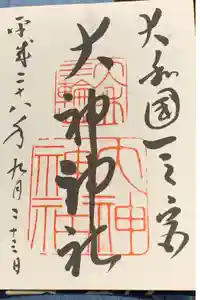 大和國一之宮
大神神社
三輪
明神
大神
神社
平成二十八年九月二十三日